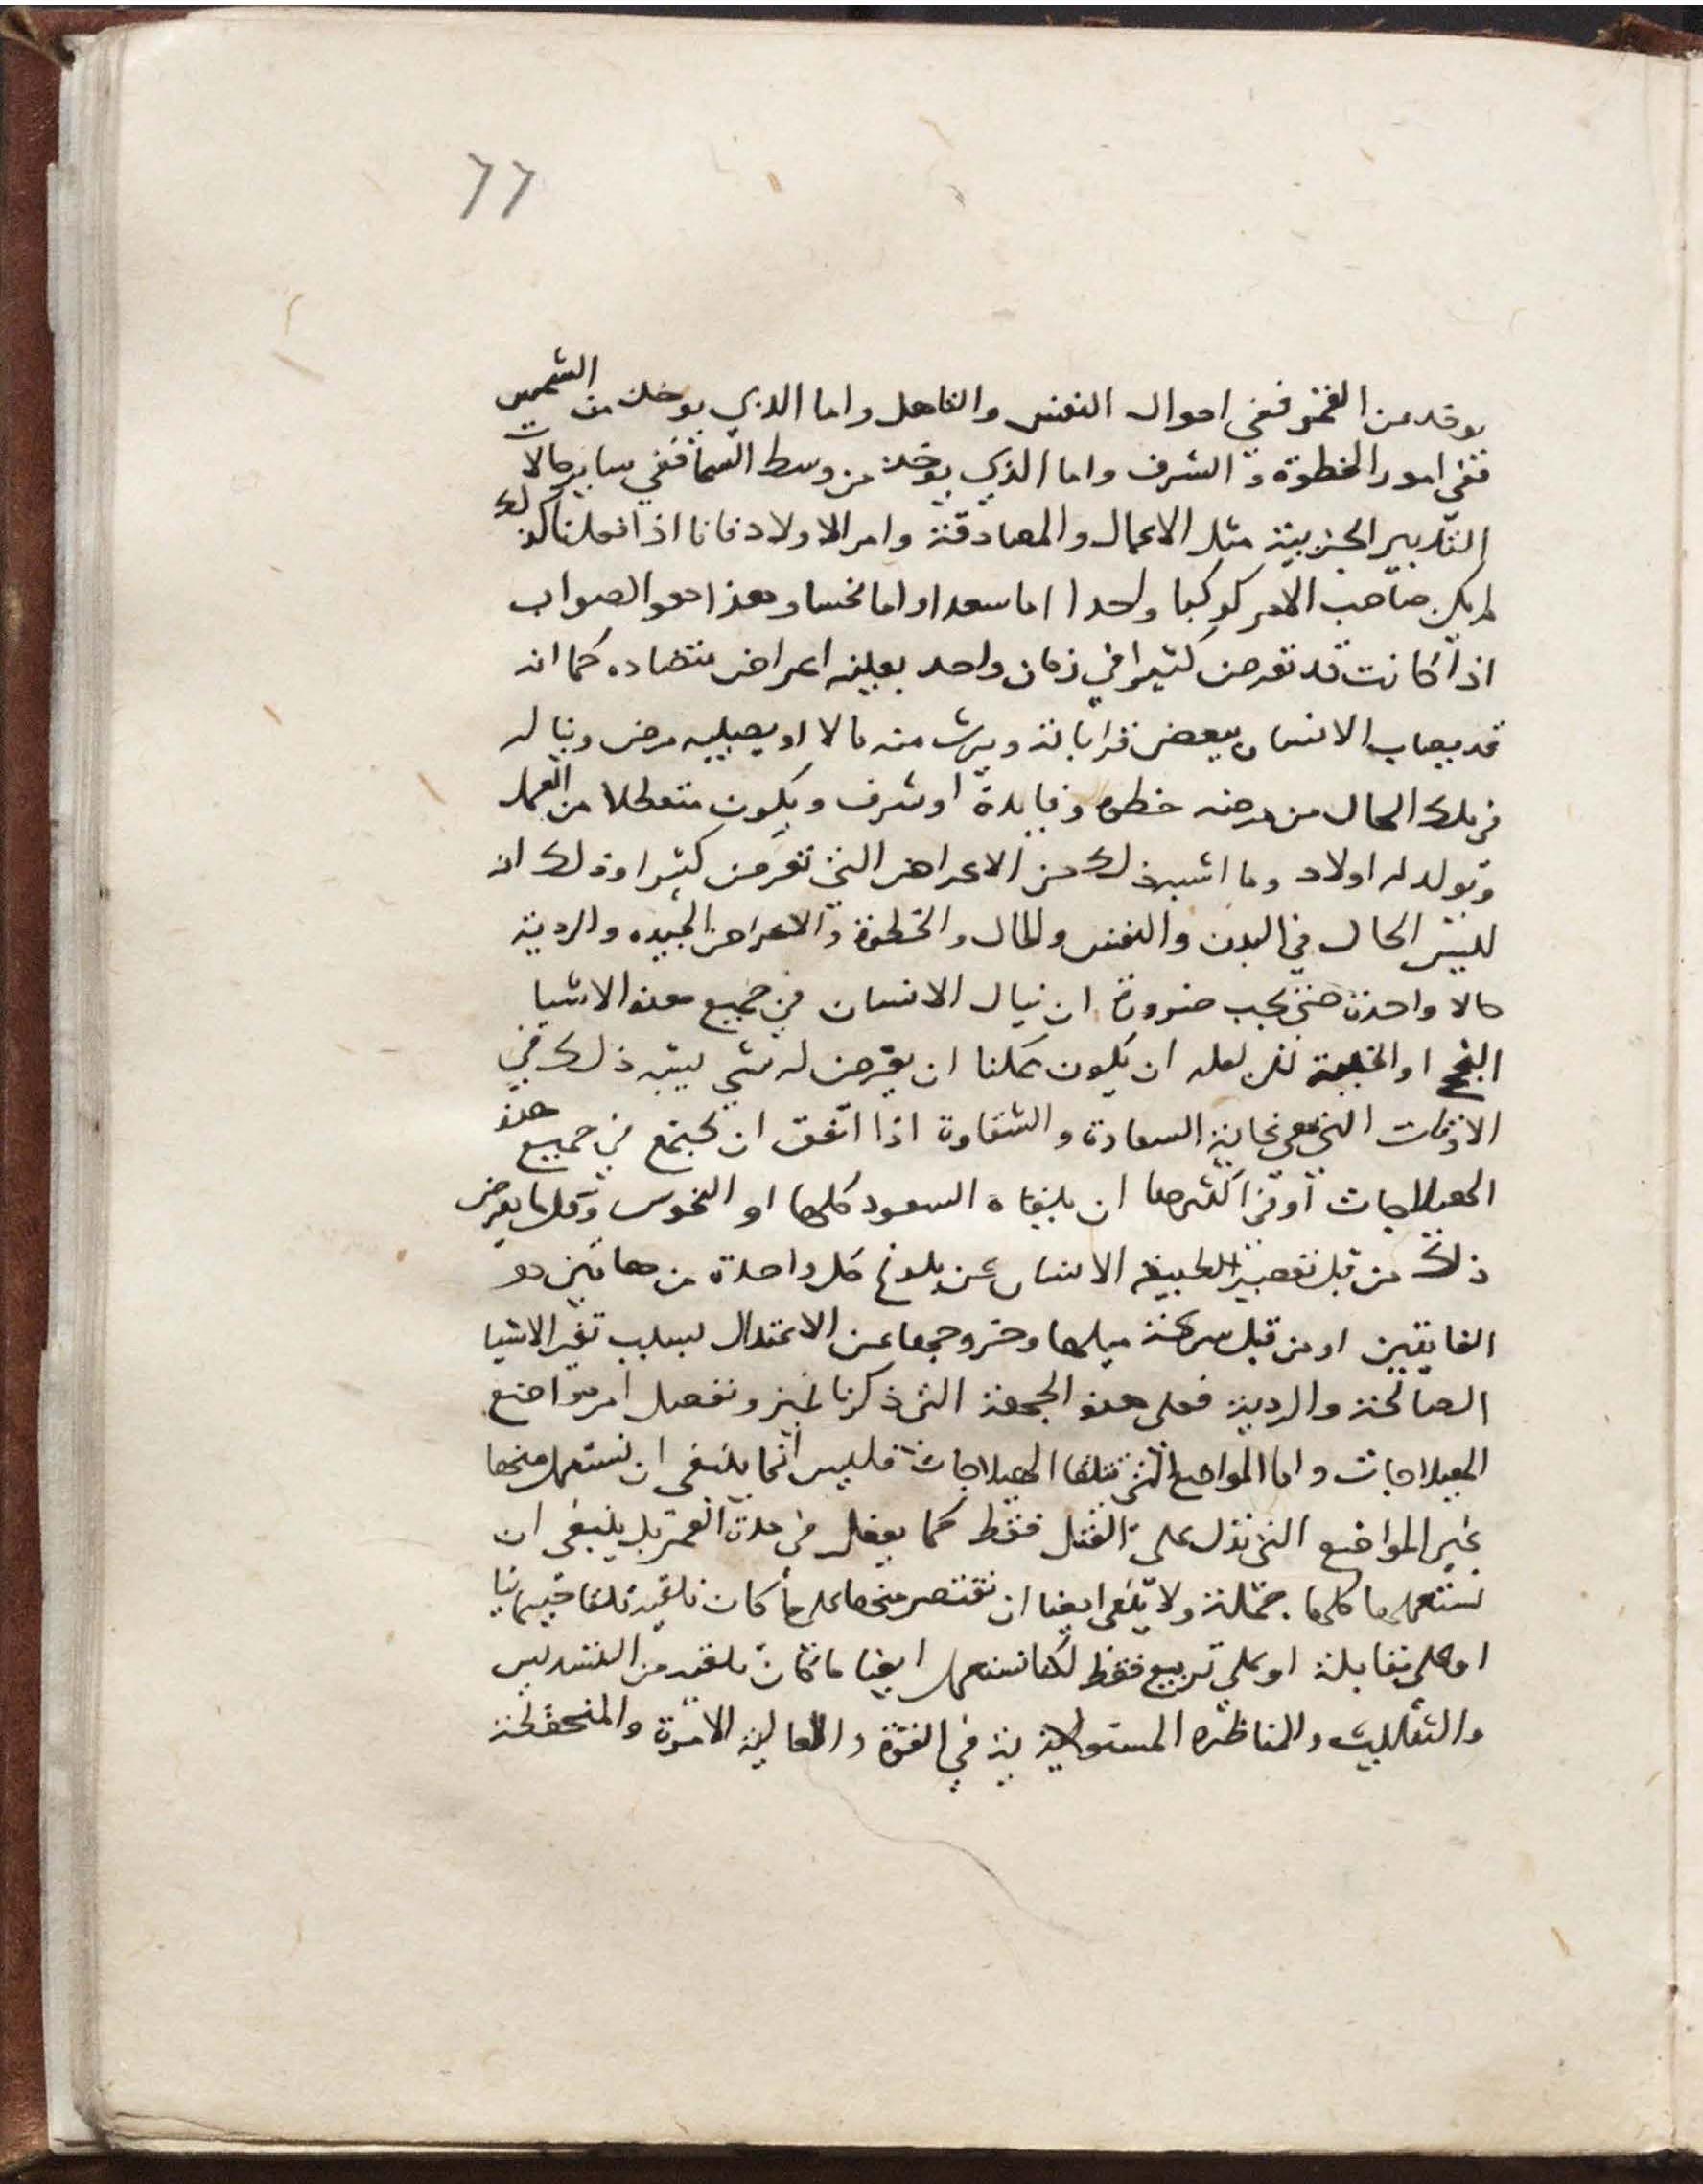 ٦٦
يوخد من القمر ففي احوال النفس والتاهل واما الذي يوخذ من الشمس
ففي امور الخطوة و الشرف واما الذي يوخذ من وسط السما ففي ساير حالات
التدبير الجزيية مثل الاعمال والمصادقة وامر الاولاد فانا اذا فعلنا كذلك
لم يكن صاحب الامر كوكبا واحدا اما سعدا واما نحسا وهذا هو الصواب
اذا كانت قد تعرض كثيرا في زمان واحد بعينه اعراض متضاده كما انه
قد يصاب الانسان ببعض قراباته ويرث منه مالا او يصيبه مرض ويناله
في تلك الحال من مرضه خطوه وفايدة او شرف ويكون متعطلا من العمل
وتولد له اولاد وما اشبه ذلك من الاعراض التي تعرض كثيرا وذلك انه
لليس الحال في البدن والنفس والمال والخطوة والاعراض الجيده والردية
حالا واحدة حتى يجب ضرورة ان ينال الانسان في جميع هذه الاشيا
النجح او الخيبة لكن لعله ان يكون ممكنا ان يعرض له شي يشبه ذلك في
الاوقات التي هي غاية السعادة و الشقاوة اذا اتفق ان يجتمع في جميع هذه
الهيلاجات او في اكثرها ان يلقاه السعود كلها او النحوس وقلما يعرض
ذلك من قبل تقصير طبيعة الانسان عن بلوغ كل واحدة من هاتين دو
الغايتين او من قبل سرعة ميلها وخروجها عن الاعتدال لسبب تغير الاشيا
الصالحة والردية فعلى هذه الجهة التي ذكرنا نميز ونفصل امر مواضع
الهيلاجات واما المواضع التي تلقا الهيلاجات فليس انما ينبغي ان نستعمل منها
غير المواضع التي تدل على القتل فقط كما يفعل في مدة العمر بل ينبغي ان
نستعملها كلها جملة ولا ينبغي ايضا ان نقتصر منها على ما كان تلقيه تلقا جسمانيا
او على مقابلة او على تربيع فقط لكنا نستعمل ايضا ما كان تلقيه من التسديس
والتثليث والمناظره المستولية في القوة والعالية الامرة والمنحفظة